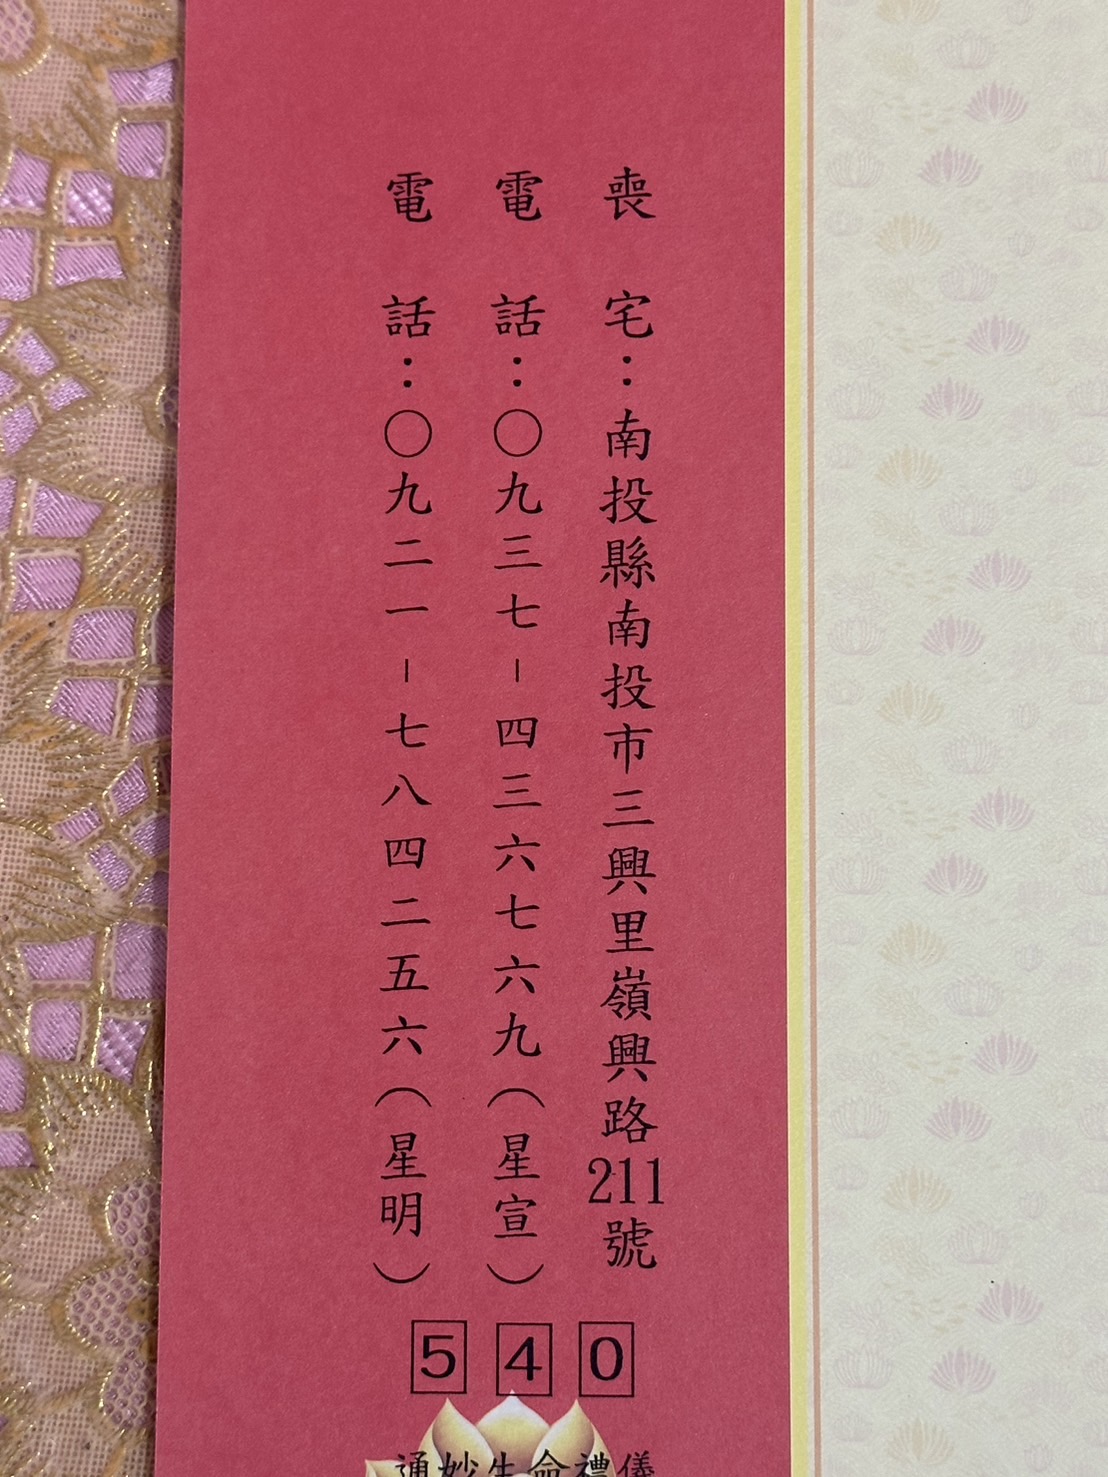 喪宅：南投縣南投市三興里嶺興路211號
電話：〇九三七-四三六七六九（星宣）
電話：〇九二一-七八四二五六（星明）
540
通妙生命禮儀